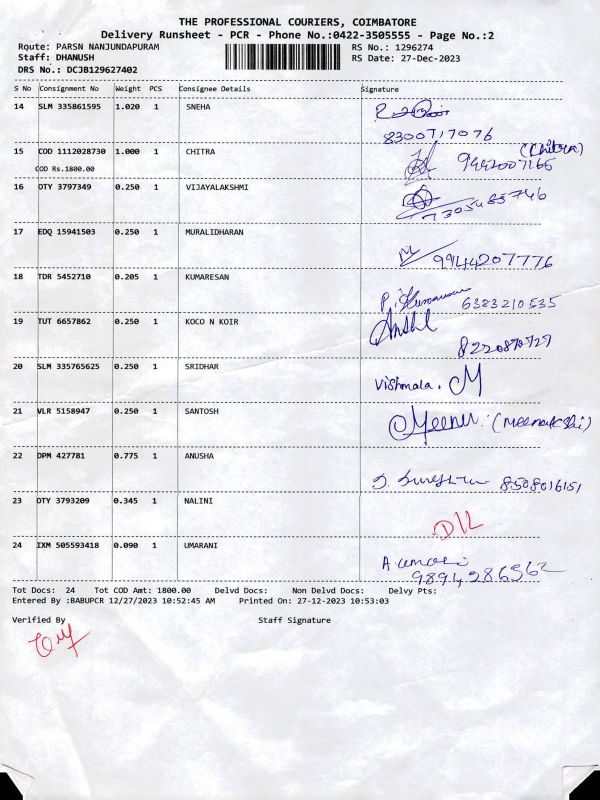 THE PROFESSIONAL COURIERS, COIMBATORE
Delivery Runsheet - PCR - Phone No.:0422-3505555 - Page No.:2
Route: PARSN NANJUNDAPURAM RS No.: 1296274
Staff: DHANUSH RS Date: 27-Dec-2023
DRS No.: DCJB129627402
S No Consignment No Weight PCS Consignee Details Signature
14 SLM 335861595 1.020 1 SNEHA
8300717076
15 COD 1112028730 1.000 1 CHITRA (Chitra)
COD Rs.1800.00 9442007165
16 OTY 3797349 0.250 1 VIJAYALAKSHMI
7305485746
17 EDQ 15941503 0.250 1 MURALIDHARAN
9944207776
18 TDR 5452710 0.205 1 KUMARESAN
P. Kumaresan 6383210535
19 TUT 6657862 0.250 1 KOCO N KOIR
20 SLM 335765625 0.250 1 SRIDHAR
Vishmala. M
21 VLR 5158947 0.250 1 SANTOSH
Meenu. (Meenakshi)
22 DPM 427781 0.775 1 ANUSHA
8508016151
23 OTY 3793209 0.345 1 NALINI
D/L
24 IXM 505593418 0.090 1 UMARANI
A umarani
9894286562
Tot Docs: 24 Tot COD Amt: 1800.00 Delvd Docs: Non Delvd Docs: Delvy Pts:
Entered By :BABUPCR 12/27/2023 10:52:45 AM Printed On: 27-12-2023 10:53:03
Verified By Staff Signature